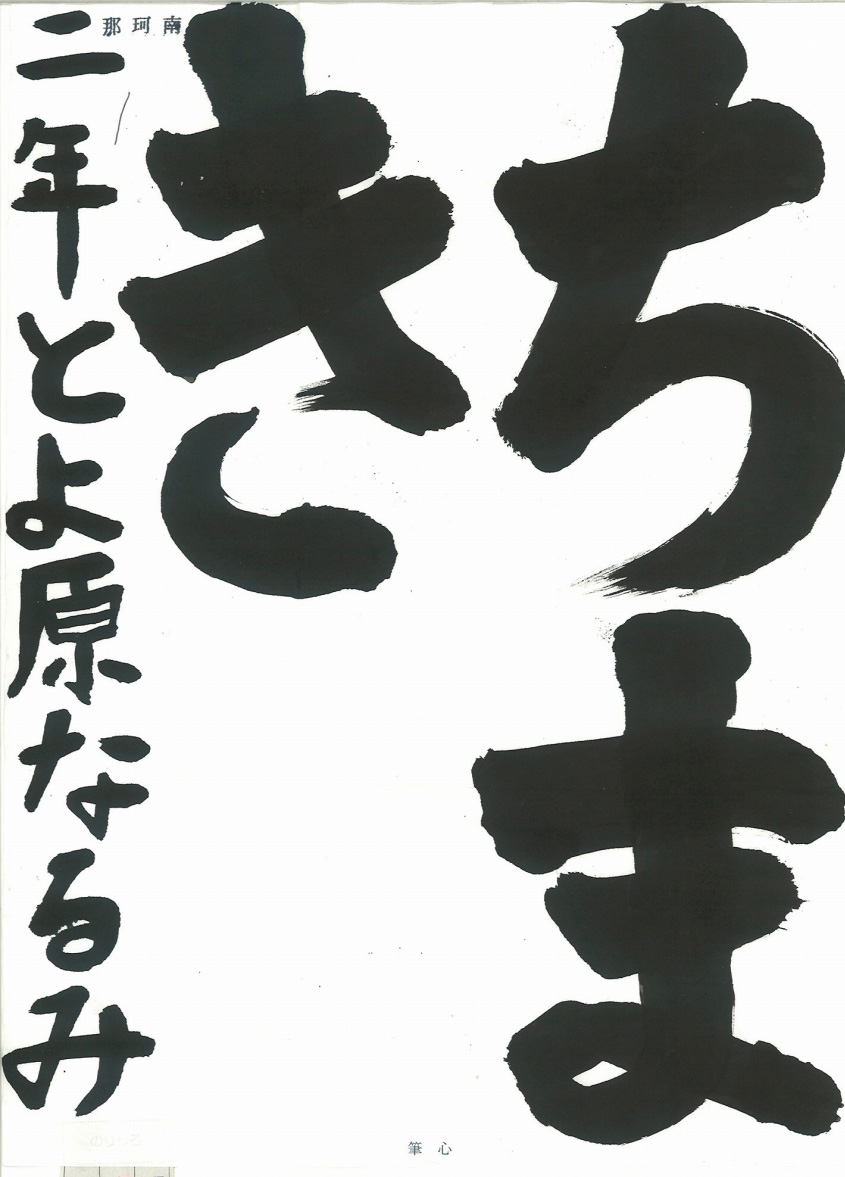 ちま
き
二年とよ原なるみ
南珂那
心筆